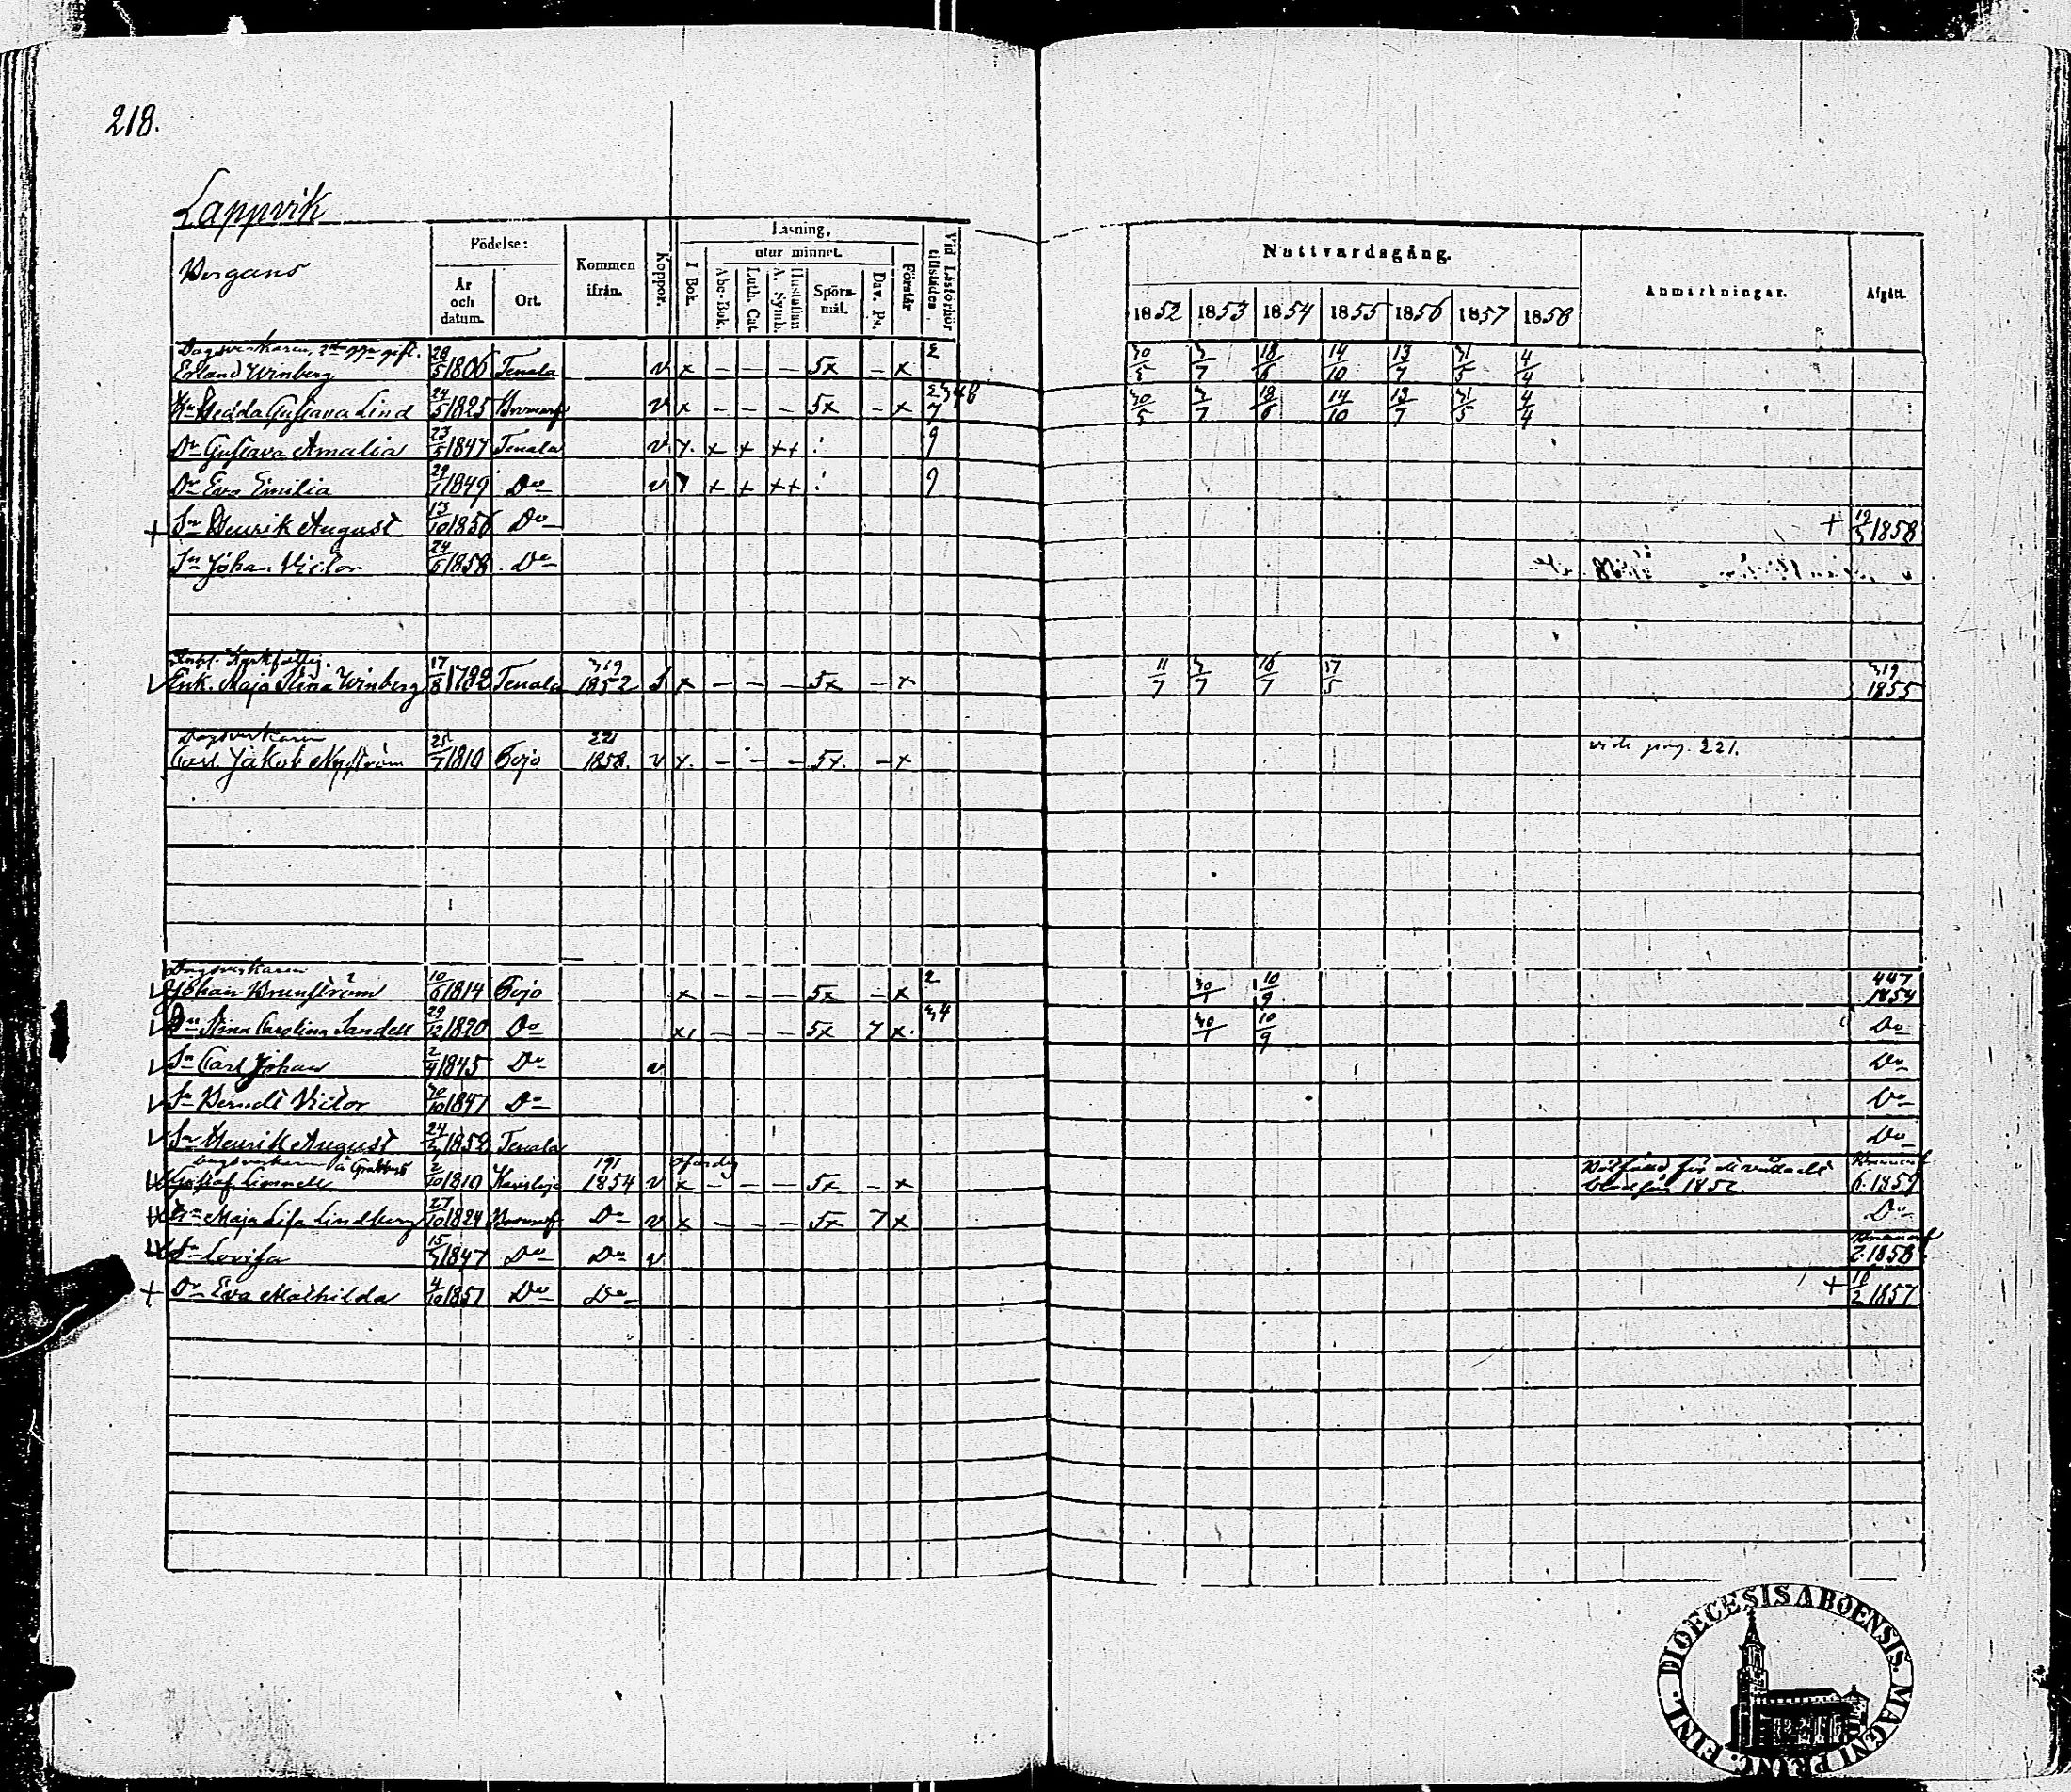 218.
Lappvik
Bergans
Födelse:
År och datum.
Ort.
Kommen ifrån.
Koppor.
Läsning,
I Bok.
utur minnet.
Abc-Bok.
Luth. Cat.
A. Symb.
Hustaflan
Spörsmål.
Dav. Ps.
Förstår
Vid Läsförhör tillstädes.
Nattvardsgång.
1852 1853 1854 1855 1856 1857 1858
Anmärkningar.
Afgått.
Dagsverkaren, 2dra ggn gift.
Erland Winberg 28/5 1806 Tenala v x — — — 5x — x 2 30/5 3/7 18/6 14/10 13/7 31/5 4/4
Hu Hedda Gustava Lind 24/5 1825 Bromarf v x — — — 5x — x 2 3 4 8 7 30/5 3/7 18/6 14/10 13/7 31/5 4/4
Dr Gustava Amalia 23/5 1847 Tenala v. 7. + + ++ 9
Dr Eva Emilia 29/1 1849 Do v 7 + + ++ 9
+ Sn Henrik August 13/10 1856 Do + 19/3 1858
Sn Johan Victor 24/6 1858 Do
Enk. Maja Stina Winberg 17/8 1782 Tenala 319 1852 S x — — — 5x — x 11/7 3/7 16/7 17/5 319 1855
Dagsverkaren
Carl Jakob Nyström 25/7 1810 Pojo 221 1858. v x. — — — 5x. — x vide pag. 221.
Dagsverkaren
Johan Brunström 10/6 1814 Pojo x — — — 5x — x 2 30/1 10/9 447 1854
Hu Stina Carolina Sandell 29/12 1820 Do x — — — 5x 7 x. 34 30/1 10/9 Do
Sn Carl Johan 2/4 1845 Do v Do
Sn Berndt Victor 30/10 1847 Do Do
Sn Henrik August 24/3 1852 Tenala Do
Dagsverkaren å Grabbens
Gustaf Limnell 2/10 1810 Karislojo 191 1854 v x — — — 5x — x 1852. Bromarf 6. 1857
Hu Maja Lisa Lindberg 27/10 1824 Bromarf Do v x — — — 5x 7 x Do
Dr Lovisa 15/3 1847 Do Do v Bromarf 2. 1858
+ Dr Eva Mathilda 4/10 1851 Do Do + 18/2 1857
DIOECESIS ABOENSIS. MAGNI PRINC. FINL.